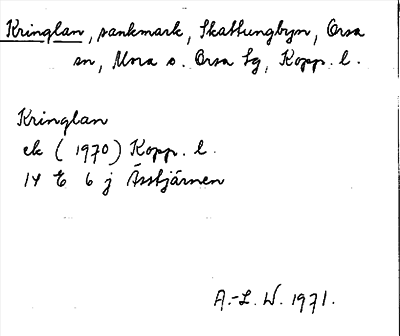 Kringlan, sankmark, Skattungbyn, Orsa
sn, Mora o. Orsa tg, Kopp. l.
Kringlan
ek (1970) Kopp. l.
14 E 6 j Åsstjärnen
A.-L. W. 1971.